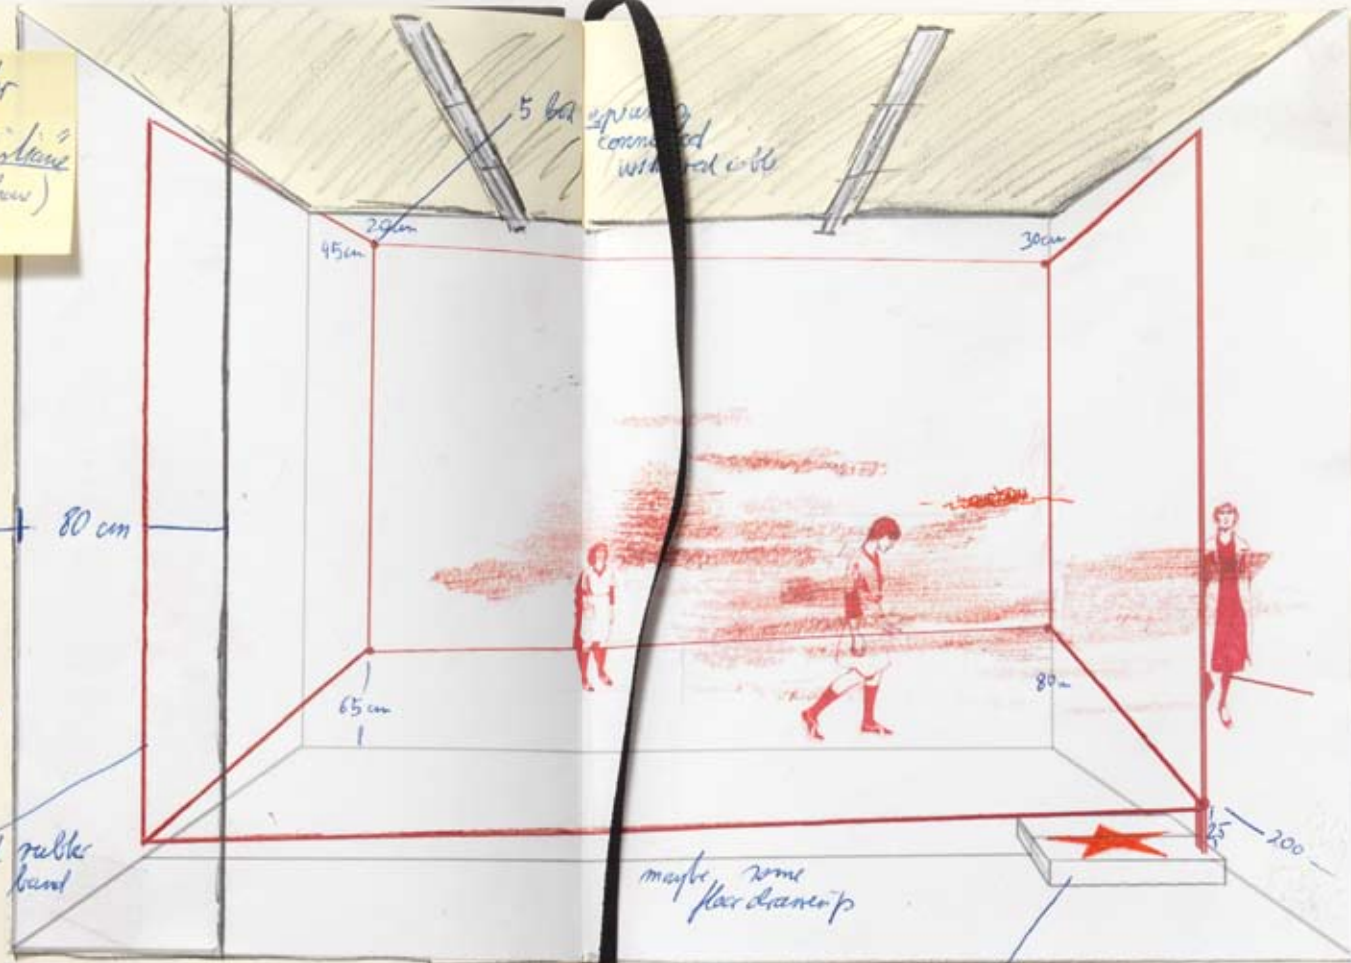 5 box
connected
with red cable
20cm
45cm
30cm
80 cm
65 cm
80
25
200
rubber
band
maybe some
floor drawings